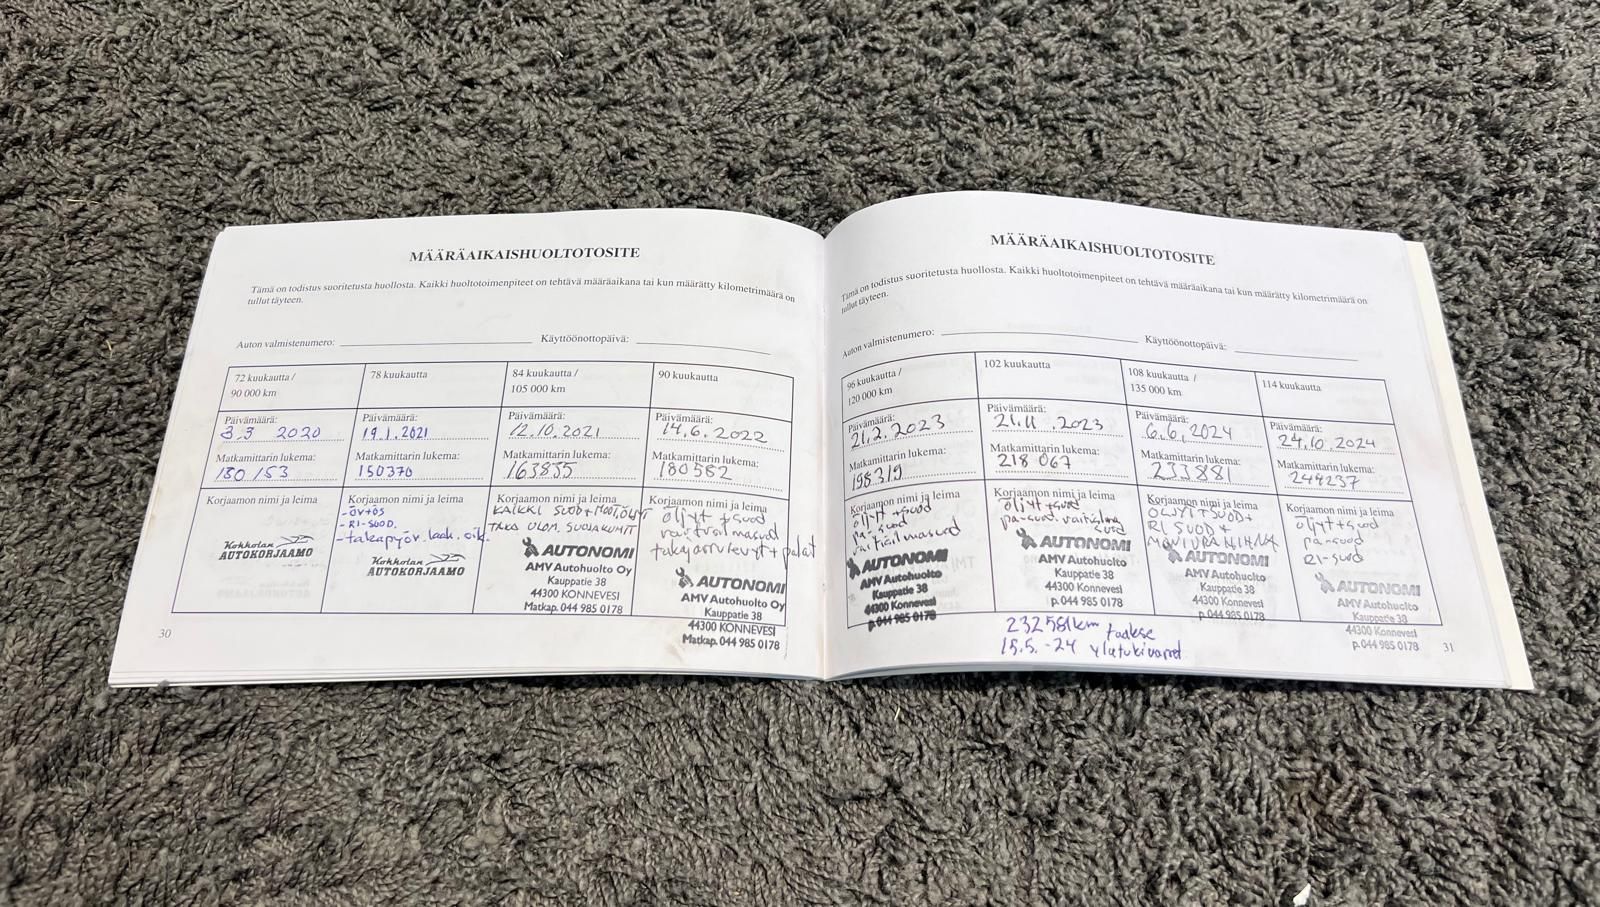 MÄÄRÄAIKAISHUOLTOTOSITE
Tämä on todistus suoritetusta huollosta. Kaikki huoltotoimenpiteet on tehtävä määräaikana tai kun määrätty kilometrimäärä on
tullut täyteen.
Auton valmistenumero: Käyttöönottopäivä:
72 kuukautta /
90 000 km
Päivämäärä:
3.3 2020
Matkamittarin lukema:
130 153
Korjaamon nimi ja leima
Kokkolan
AUTOKORJAAMO
78 kuukautta
Päivämäärä:
19.1.2021
Matkamittarin lukema:
150370
Korjaamon nimi ja leima
-ÖV+ÖS
-RI-SUOD.
-takapyör. laak. oik.
Kokkolan
AUTOKORJAAMO
84 kuukautta /
105 000 km
Päivämäärä:
12.10.2021
Matkamittarin lukema:
163835
Korjaamon nimi ja leima
KAIKKI SUOD+MOOTÖLJYT
TAKA ULOM. SUOJAKUMIT
AUTONOMI
AMV Autohuolto Oy
Kauppatie 38
44300 KONNEVESI
Matkap. 044 985 0178
90 kuukautta
Päivämäärä:
14.6.2022
Matkamittarin lukema:
180582
Korjaamon nimi ja leima
öljyt +suod
takajarrulevyt + palat
AUTONOMI
AMV Autohuolto Oy
Kauppatie 38
44300 KONNEVESI
Matkap. 044 985 0178
30
MÄÄRÄAIKAISHUOLTOTOSITE
Tämä on todistus suoritetusta huollosta. Kaikki huoltotoimenpiteet on tehtävä määräaikana tai kun määrätty kilometrimäärä on
tullut täyteen.
Auton valmistenumero: Käyttöönottopäivä:
96 kuukautta /
120 000 km
Päivämäärä:
21.2.2023
Matkamittarin lukema:
198319
Korjaamon nimi ja leima
öljyt +suod
pa-suod
AUTONOMI
AMV Autohuolto
Kauppatie 38
44300 Konnevesi
p. 044 985 0178
102 kuukautta
Päivämäärä:
21.11.2023
Matkamittarin lukema:
218 067
Korjaamon nimi ja leima
öljyt +suod
pa-suod.
suod
AUTONOMI
AMV Autohuolto
Kauppatie 38
44300 Konnevesi
p. 044 985 0178
108 kuukautta /
135 000 km
Päivämäärä:
6.6.2024
Matkamittarin lukema:
233881
Korjaamon nimi ja leima
ÖLJYT SUOD+
RI SUOD +
MONIURAHIHNA
AUTONOMI
AMV Autohuolto
Kauppatie 38
44300 Konnevesi
p. 044 985 0178
114 kuukautta
Päivämäärä:
24.10.2024
Matkamittarin lukema:
244237
Korjaamon nimi ja leima
öljyt+suod
pa-suod
RI-suod
AUTONOMI
AMV Autohuolto
Kauppatie 38
44300 Konnevesi
p. 044 985 0178
232581km taakse
15.5.-24 ylätukivarret
31